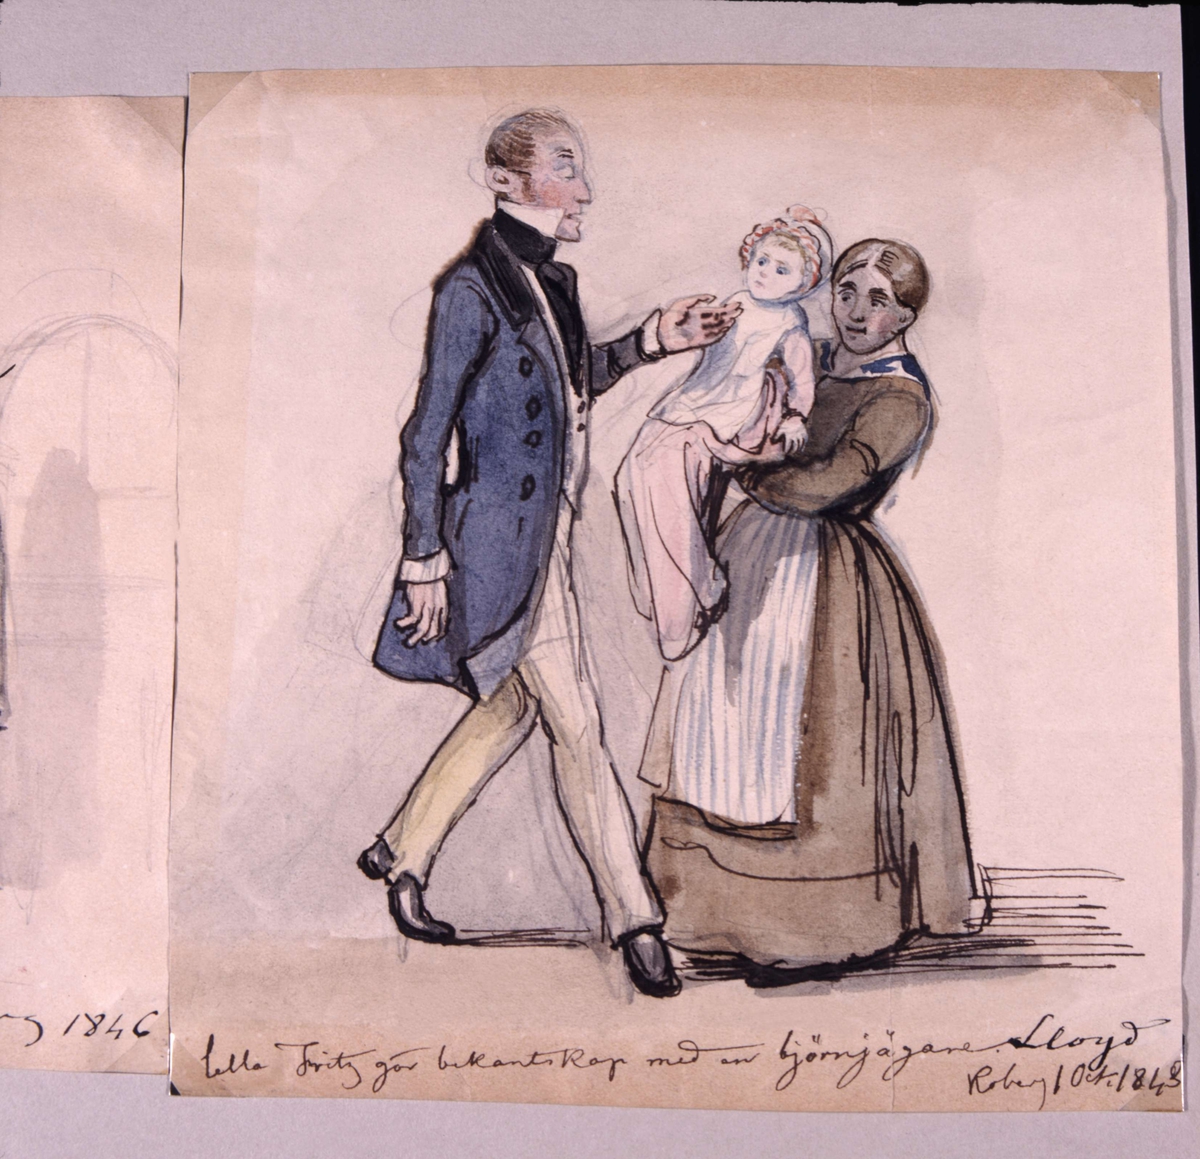 g 1846
lella Fritz gör bekantskap med en björnjägare. Lloyd
Roberg 1 Oct. 1848